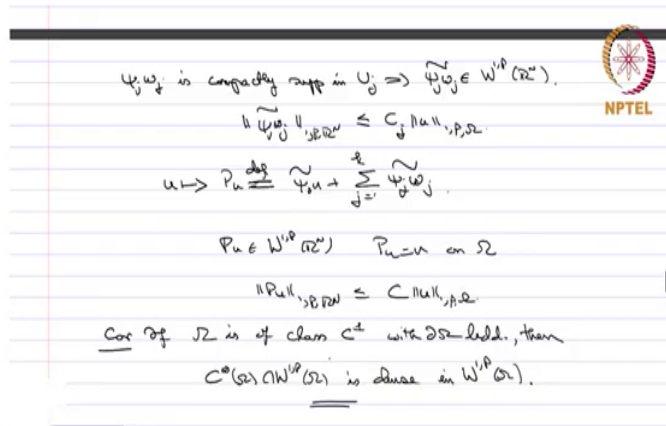 NPTEL
ψ_j w_j is compactly supp in U_j ⇒ \widetilde{ψ_j w_j} ∈ W^{1,p}(ℝ^N).
‖\widetilde{ψ_j w_j}‖_{1,p,ℝ^N} ≤ C_j ‖u‖_{1,p,Ω}.
u ↦ Pu \overset{def}{=} \widetilde{ψ_0 u} + \sum_{j=1}^{k} \widetilde{ψ_j w_j}.
Pu ∈ W^{1,p}(ℝ^N) Pu = u on Ω
‖Pu‖_{1,p,ℝ^N} ≤ C ‖u‖_{1,p,Ω}
Cor If Ω is of class C^1 with ∂Ω bdd., then
C^∞(Ω) ∩ W^{1,p}(Ω) is dense in W^{1,p}(Ω).